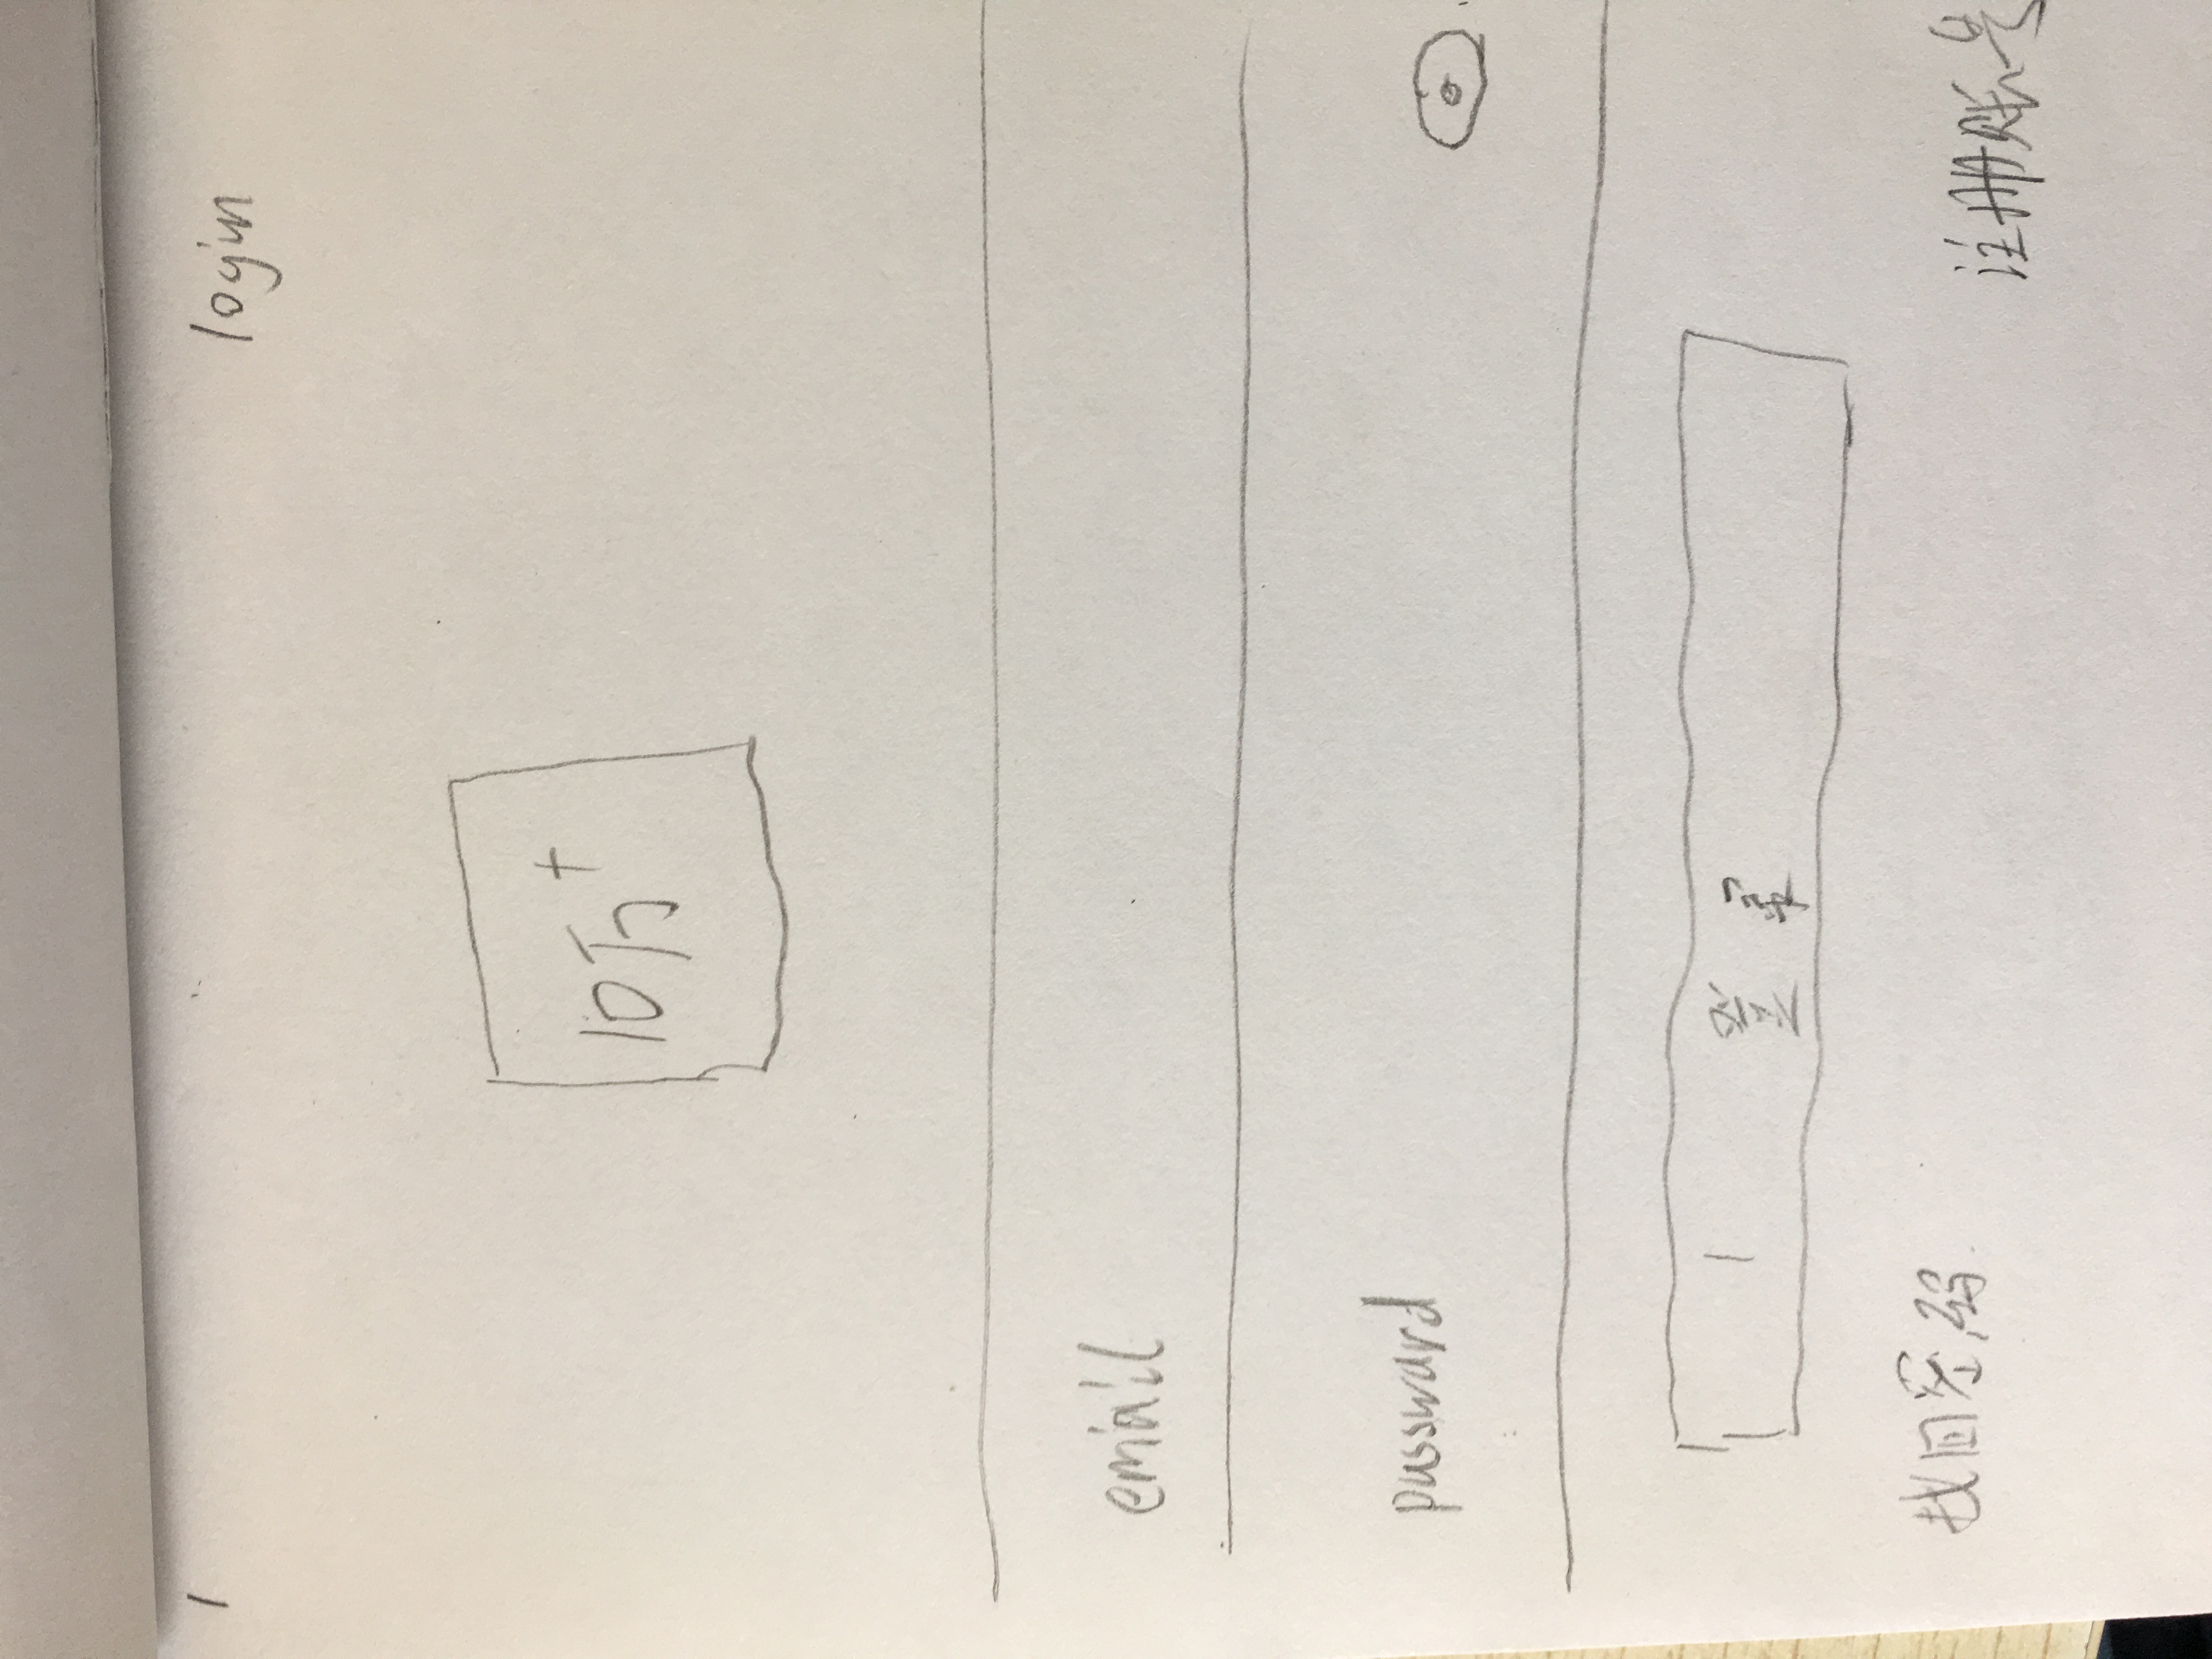 1 login
10万+
email
password
登录
找回密码
注册账号